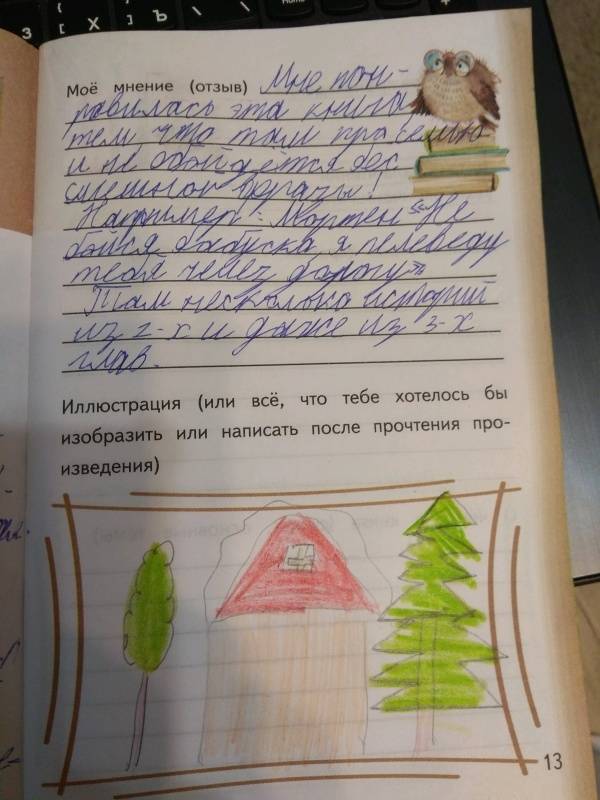 З Х Ъ Home
Моё мнение (отзыв) Мне пон-
равилась эта книга
тем что там про семью
и не обойдётся бес
смешной фразы!
Например: Мортен «Не
бойся бабуска, я пелеведу
тебя челез дорогу»
Там несколько историй
из 2-х и даже из 3-х
глав.
Иллюстрация (или всё, что тебе хотелось бы
изобразить или написать после прочтения про-
изведения)
13